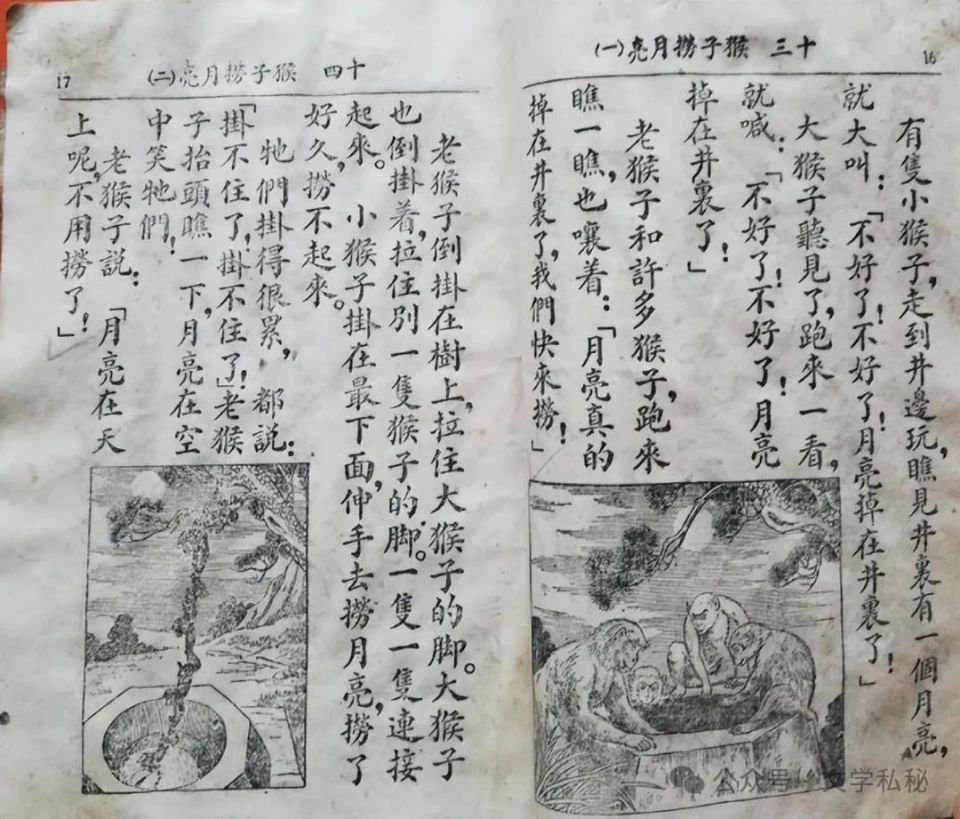 16
十三　猴子撈月亮(一)
有隻小猴子,走到井邊玩,瞧見井裏有一個月亮,
就大叫:「不好了!不好了!月亮掉在井裏了!」
大猴子聽見了,跑來一看,
就喊:「不好了!不好了!月亮
掉在井裏了!」
老猴子和許多猴子,跑來
瞧一瞧,也嚷着:「月亮真的
掉在井裏了,我們快來撈!」
十四　猴子撈月亮(二)
17
老猴子倒掛在樹上,拉住大猴子的脚。大猴子
也倒掛着,拉住別一隻猴子的脚。一隻一隻連接
起來。小猴子掛在最下面,伸手去撈月亮,撈了
好久,撈不起來。
牠們掛得很累,都說:
「掛不住了,掛不住了!」老猴
子抬頭瞧一下,月亮在空
中笑牠們!
老猴子說:「月亮在天
上呢,不用撈了!」
公众号·文学私秘